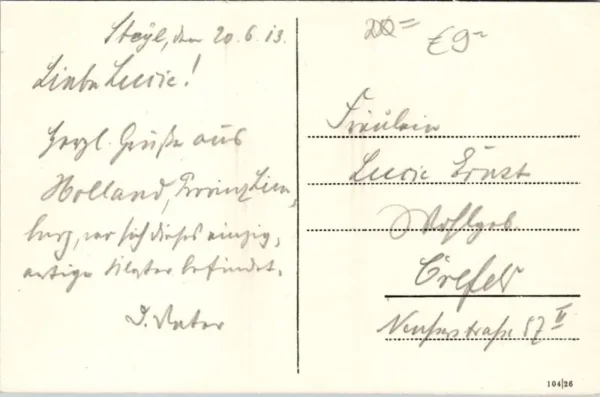 Steyl, den 20.6.13.
Liebe Lucie!
Herzl. Grüße aus
Holland, Provinz Lim-
burg, wo sich dieses einzig-
artige Kloster befindet.
D. Vater
200=
£9-
Fräulein
Lucie Ernst
Wohlgeb.
Crefeld
Neußerstraße 57 II
104|26